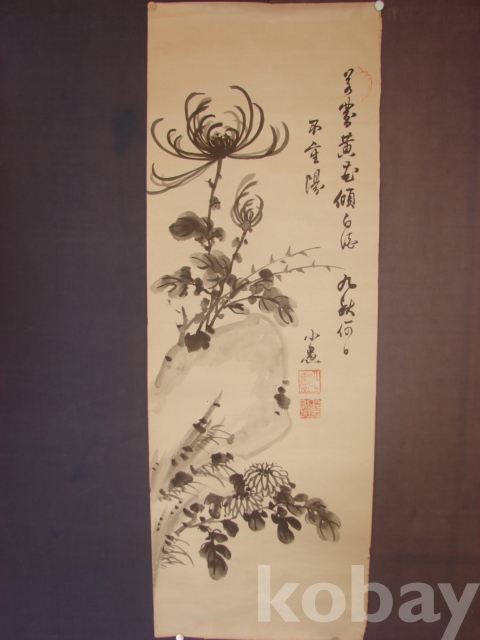 若黄花傾白酒九秋何日
不重陽
小
kobay